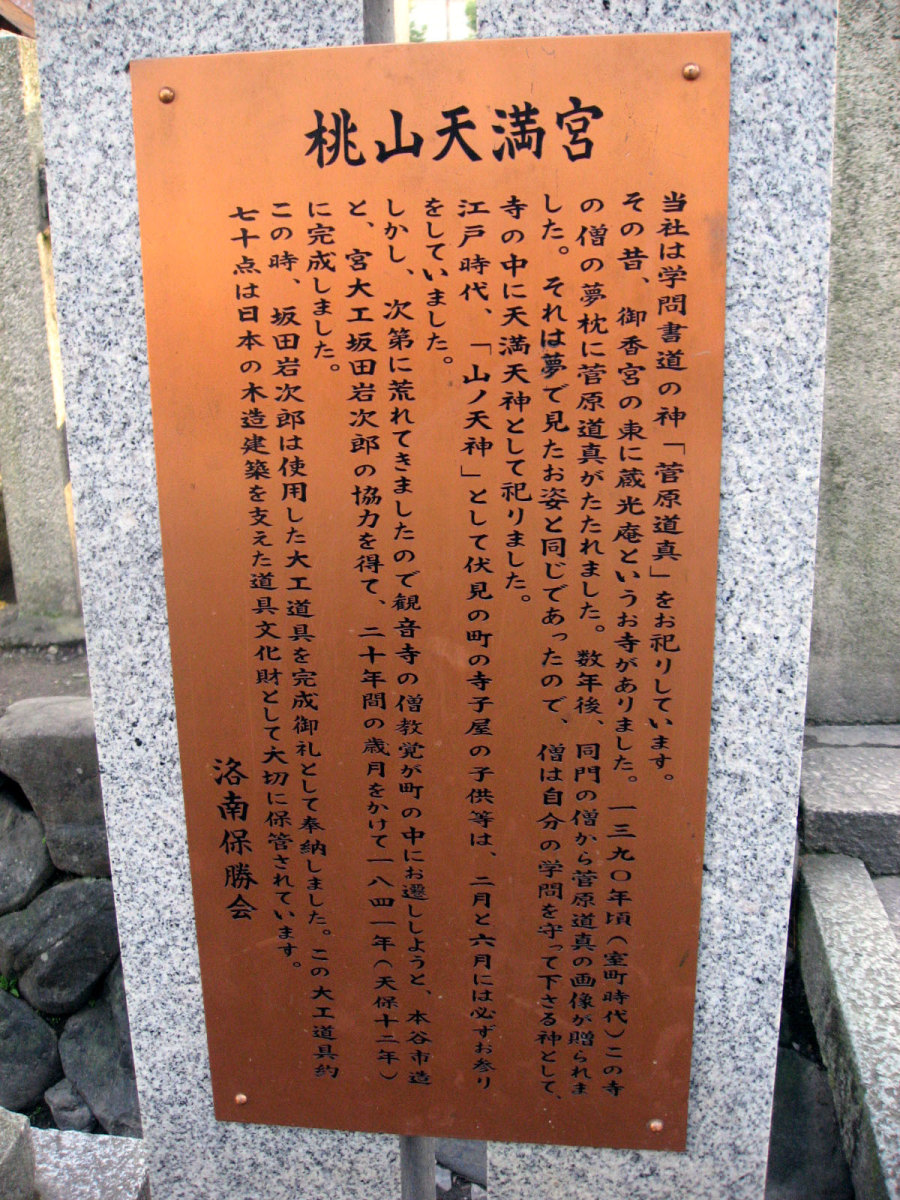 桃山天満宮
当社は学問書道の神「菅原道真」をお祀りしています。
その昔、御香宮の東に蔵光庵というお寺がありました。一三九〇年頃(室町時代)この寺
の僧の夢枕に菅原道真がたたれました。数年後、同門の僧から菅原道真の画像が贈られま
した。それは夢で見たお姿と同じであったので、僧は自分の学問を守って下さる神として、
寺の中に天満天神として祀りました。
江戸時代、「山ノ天神」として伏見の町の寺子屋の子供等は、二月と六月には必ずお参り
をしていました。
しかし、次第に荒れてきましたので観音寺の僧教覚が町の中にお遷ししようと、本谷市造
と、宮大工坂田岩次郎の協力を得て、二十年間の歳月をかけて一八四一年(天保十二年)
に完成しました。
この時、坂田岩次郎は使用した大工道具を完成御礼として奉納しました。この大工道具約
七十点は日本の木造建築を支えた道具文化財として大切に保管されています。
洛南保勝会